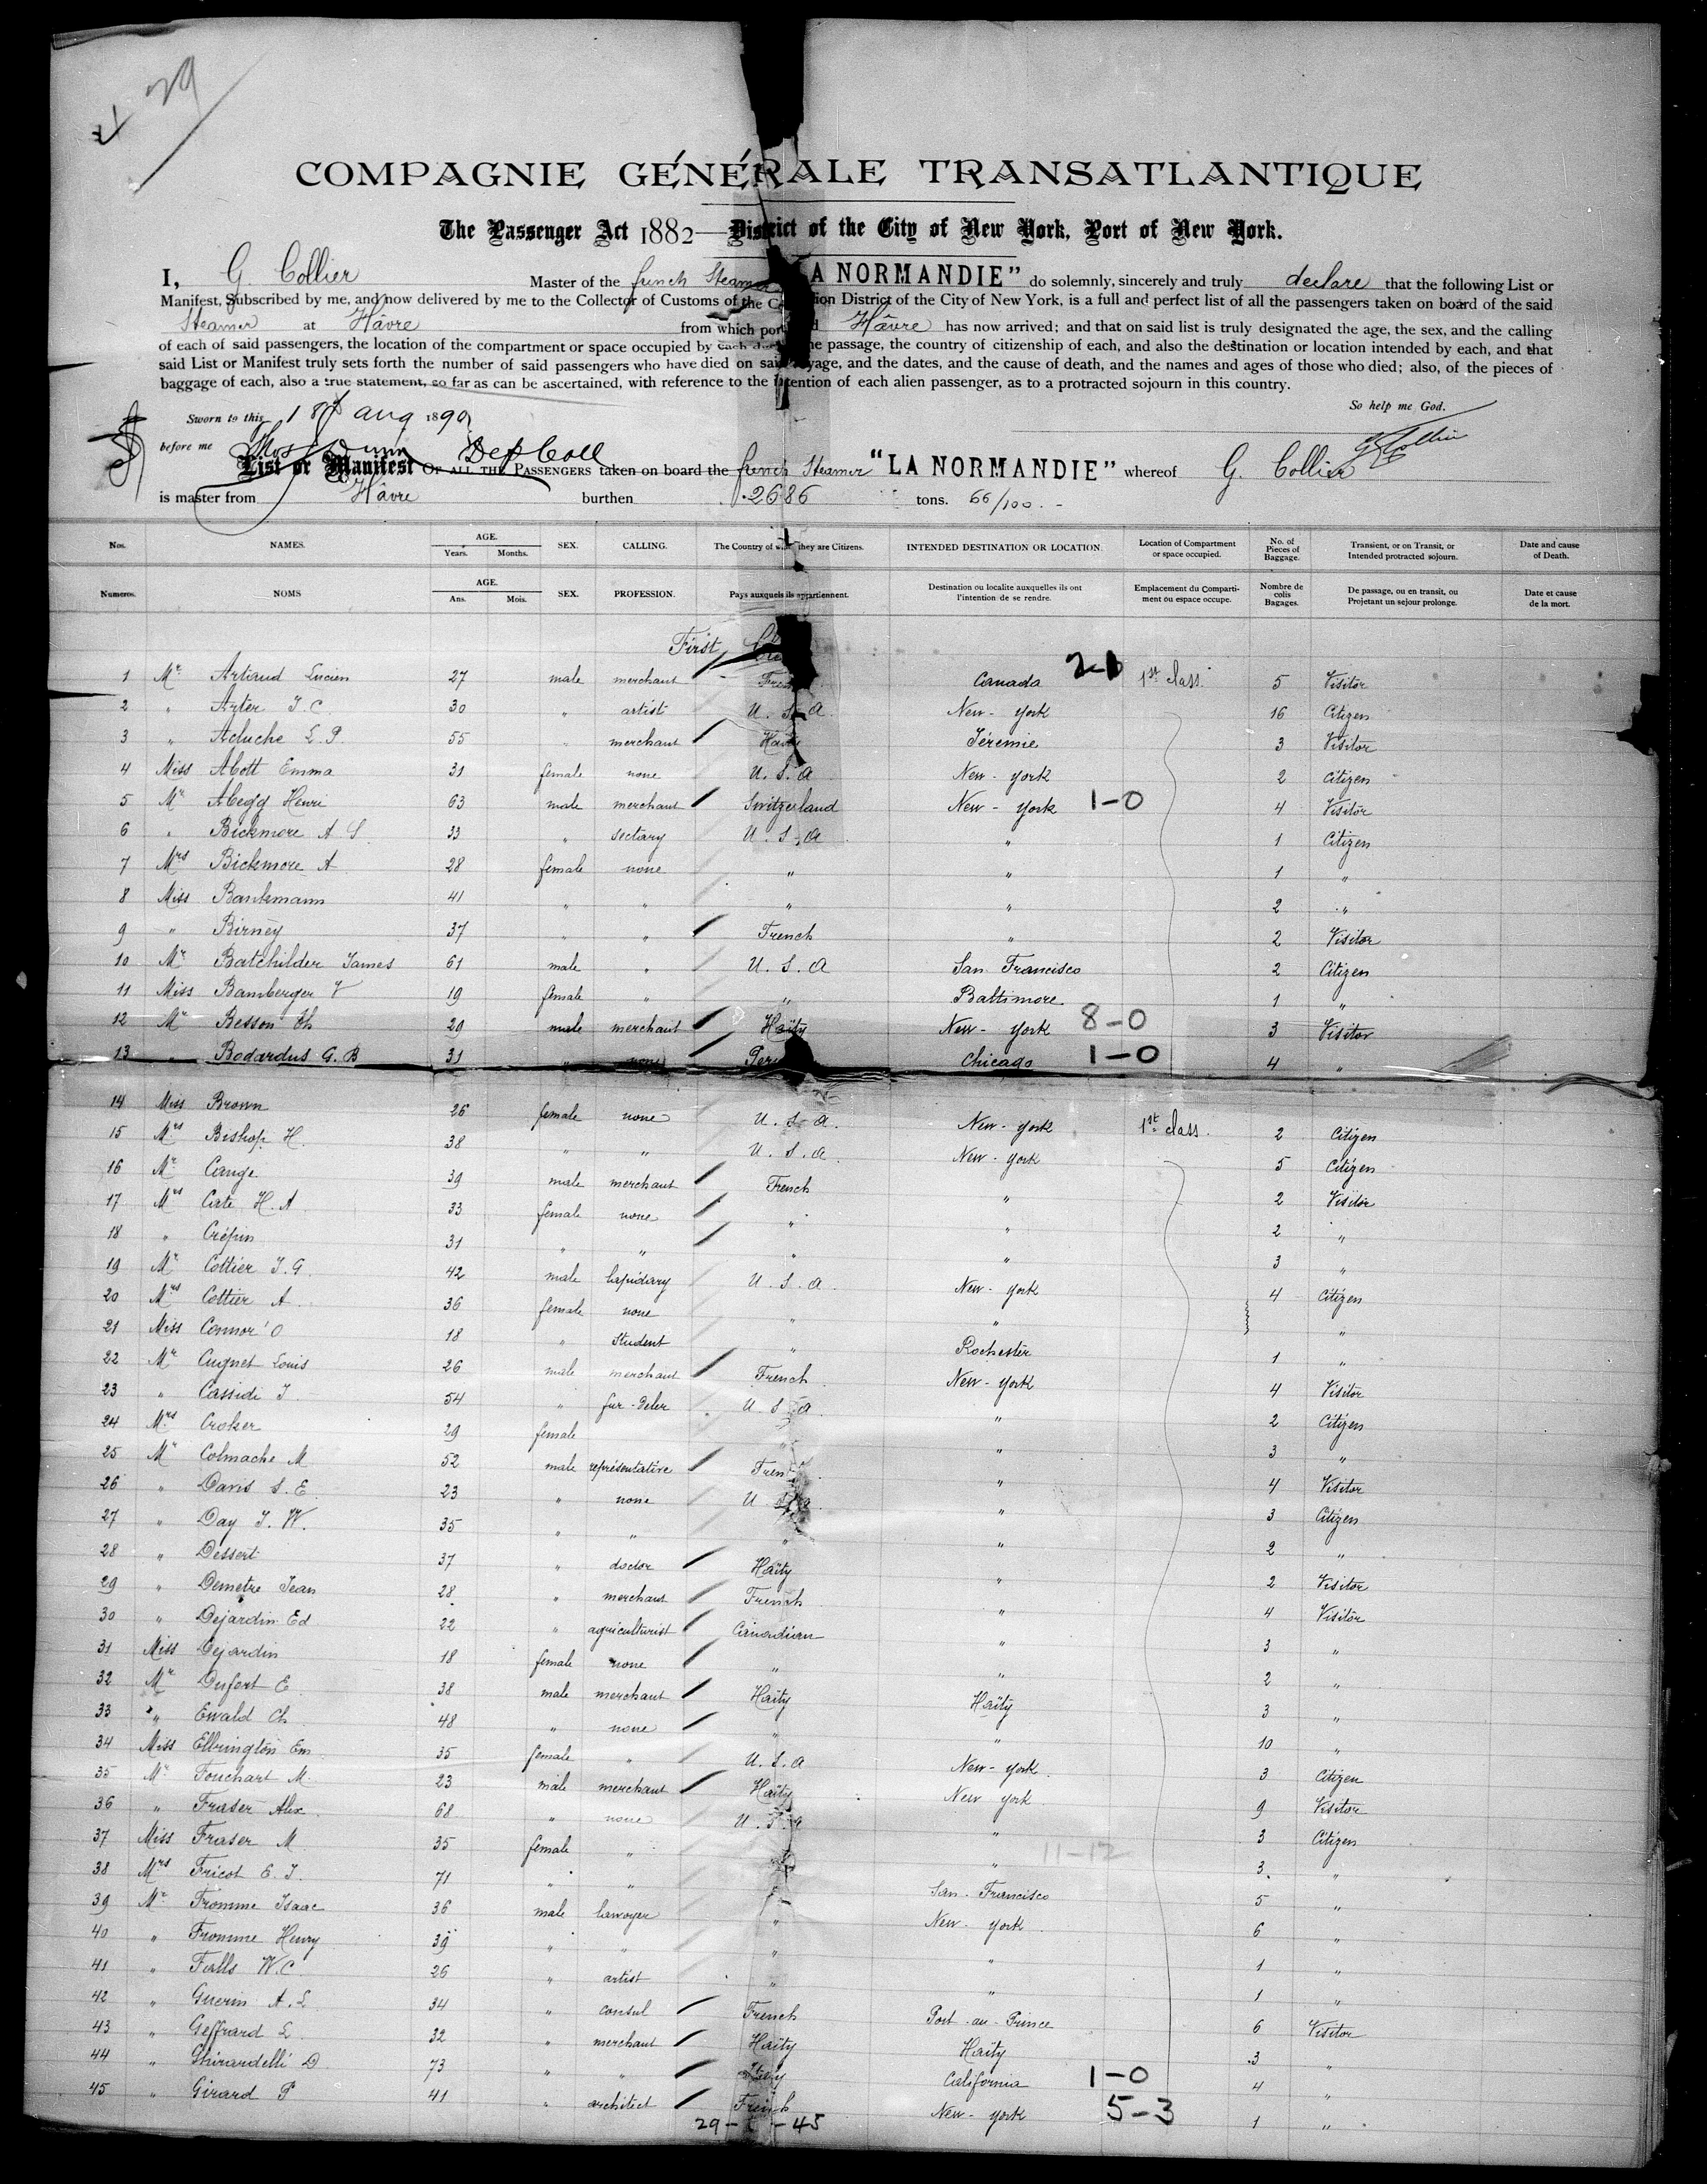 29
COMPAGNIE GÉNÉRALE TRANSATLANTIQUE
The Passenger Act 1882—District of the City of New York, Port of New York.
I, G. Collier Master of the french Steamer "LA NORMANDIE" do solemnly, sincerely and truly declare that the following List or
Manifest, Subscribed by me, and now delivered by me to the Collector of Customs of the Collection District of the City of New York, is a full and perfect list of all the passengers taken on board of the said
Steamer at Hâvre from which port Hâvre has now arrived; and that on said list is truly designated the age, the sex, and the calling
of each of said passengers, the location of the compartment or space occupied by each during the passage, the country of citizenship of each, and also the destination or location intended by each, and that
said List or Manifest truly sets forth the number of said passengers who have died on said voyage, and the dates, and the cause of death, and the names and ages of those who died; also, of the pieces of
baggage of each, also a true statement, so far as can be ascertained, with reference to the intention of each alien passenger, as to a protracted sojourn in this country.
So help me God.
Sworn to this 18th Aug 1890
before me Thos Dunn Dep Coll G Collier
List or Manifest OF ALL THE PASSENGERS taken on board the french Steamer "LA NORMANDIE" whereof G. Collier
is master from Hâvre burthen 2686 tons. 66/100.-
Nos. NAMES. AGE. Years. Months. SEX. CALLING. The Country of which they are Citizens. INTENDED DESTINATION OR LOCATION. Location of Compartment or space occupied. No. of Pieces of Baggage. Transient, or on Transit, or Intended protracted sojourn. Date and cause of Death.
Numeros. NOMS AGE. Ans. Mois. SEX. PROFESSION. Pays auxquels ils appartiennent. Destination ou localite auxquelles ils ont l'intention de se rendre. Emplacement du Compartiment ou espace occupe. Nombre de colis Bagages. De passage, ou en transit, ou Projetant un sejour prolonge. Date et cause de la mort.
First
1 Mr Artiaud Lucien 27 male merchant French Canada 2-1 1st class. 5 Visitor
2 " Azter J. C. 30 " artist U. S. A New-York 16 Citizen
3 " Acluche L. P. 55 " merchant Haïty Jéremie 3 Visitor
4 Miss Abott Emma 31 female none U. S. A New-York 2 Citizen
5 Mr Abegg Henri 63 male merchant Switzerland New-York 1-0 4 Visitor
6 " Bickmore A S 33 " sectary U. S. A " 1 Citizen
7 Mrs Bickmore A 28 female none " " 1 "
8 Miss Bankmann 41 " " " " 2 "
9 " Birney 37 " " French " 2 Visitor
10 Mr Batchilder James 61 male " U. S. A San Francisco 2 Citizen
11 Miss Bamberger V 19 female " " Baltimore 1 "
12 Mr Besson Th 29 male merchant Haïty New-York 8-0 3 Visitor
13 " Bodardus G. B 31 " none Peru Chicago 1-0 4 "
14 Miss Brown 26 female none U. S. A. New-York 1st class. 2 Citizen
15 Mrs Bishop H. 38 " " U. S. A. New-York 5 Citizen
16 Mr Cange 39 male merchant French " 2 Visitor
17 Mrs Cate H. A 33 female none " " 2 "
18 " Crépin 31 " " " " 3 "
19 Mr Cottier J. G. 42 male lapidary U. S. A New-York 4 Citizen
20 Mrs Cottier A. 36 female none " " "
21 Miss Connor' O 18 " Student " Rochester 1 "
22 Mr Cugnet Louis 26 male merchant French New-York 4 Visitor
23 " Casside J 54 " fur-deler U. S. A " 2 Citizen
24 Mrs Croker 29 female " " 3 "
25 Mr Colmache M 52 male représentative French " 4 Visitor
26 " Davis S. E. 23 " none U. S. A. " 3 Citizen
27 " Day J. W. 35 " " " " 2 "
28 " Dessert 37 " doctor Haïty " 2 Visitor
29 " Demetre Jean 28 " merchant French " 4 Visitor
30 " Dejardin Ed 22 " agriculturist Canadian " 3 "
31 Miss Dejardin 18 female none " " 2 "
32 Mr Dufort E 38 male merchant Haïty Haïty 3 "
33 " Ewald Ch 48 " none " " 10 "
34 Miss Elbrington Em 35 female " U. S. A New-York 3 Citizen
35 Mr Fouchart M. 23 male merchant Haïty New York 9 Visitor
36 " Fraser Alex 68 " none U. S. A " 3 Citizen
37 Miss Fraser M 35 female " " " 11-12 3 "
38 Mrs Fricot E. J. 71 " " " San-Francisco 5 "
39 Mr Fromme Isaac 36 male lawoyer " New-York 6 "
40 " Fromme Henry 39 " " " " 1 "
41 " Falls W. C 26 " artist " " 1 "
42 " Guerin A. L 34 " consul French Port-au-Prince 6 Visitor
43 " Geffrard L 32 " merchant Haïty Haïty 3 "
44 " Ghirardelli D 73 " " Italy California 1-0 4 "
45 " Girard P 41 " architect French New-York 5-3 1 "
29- -45